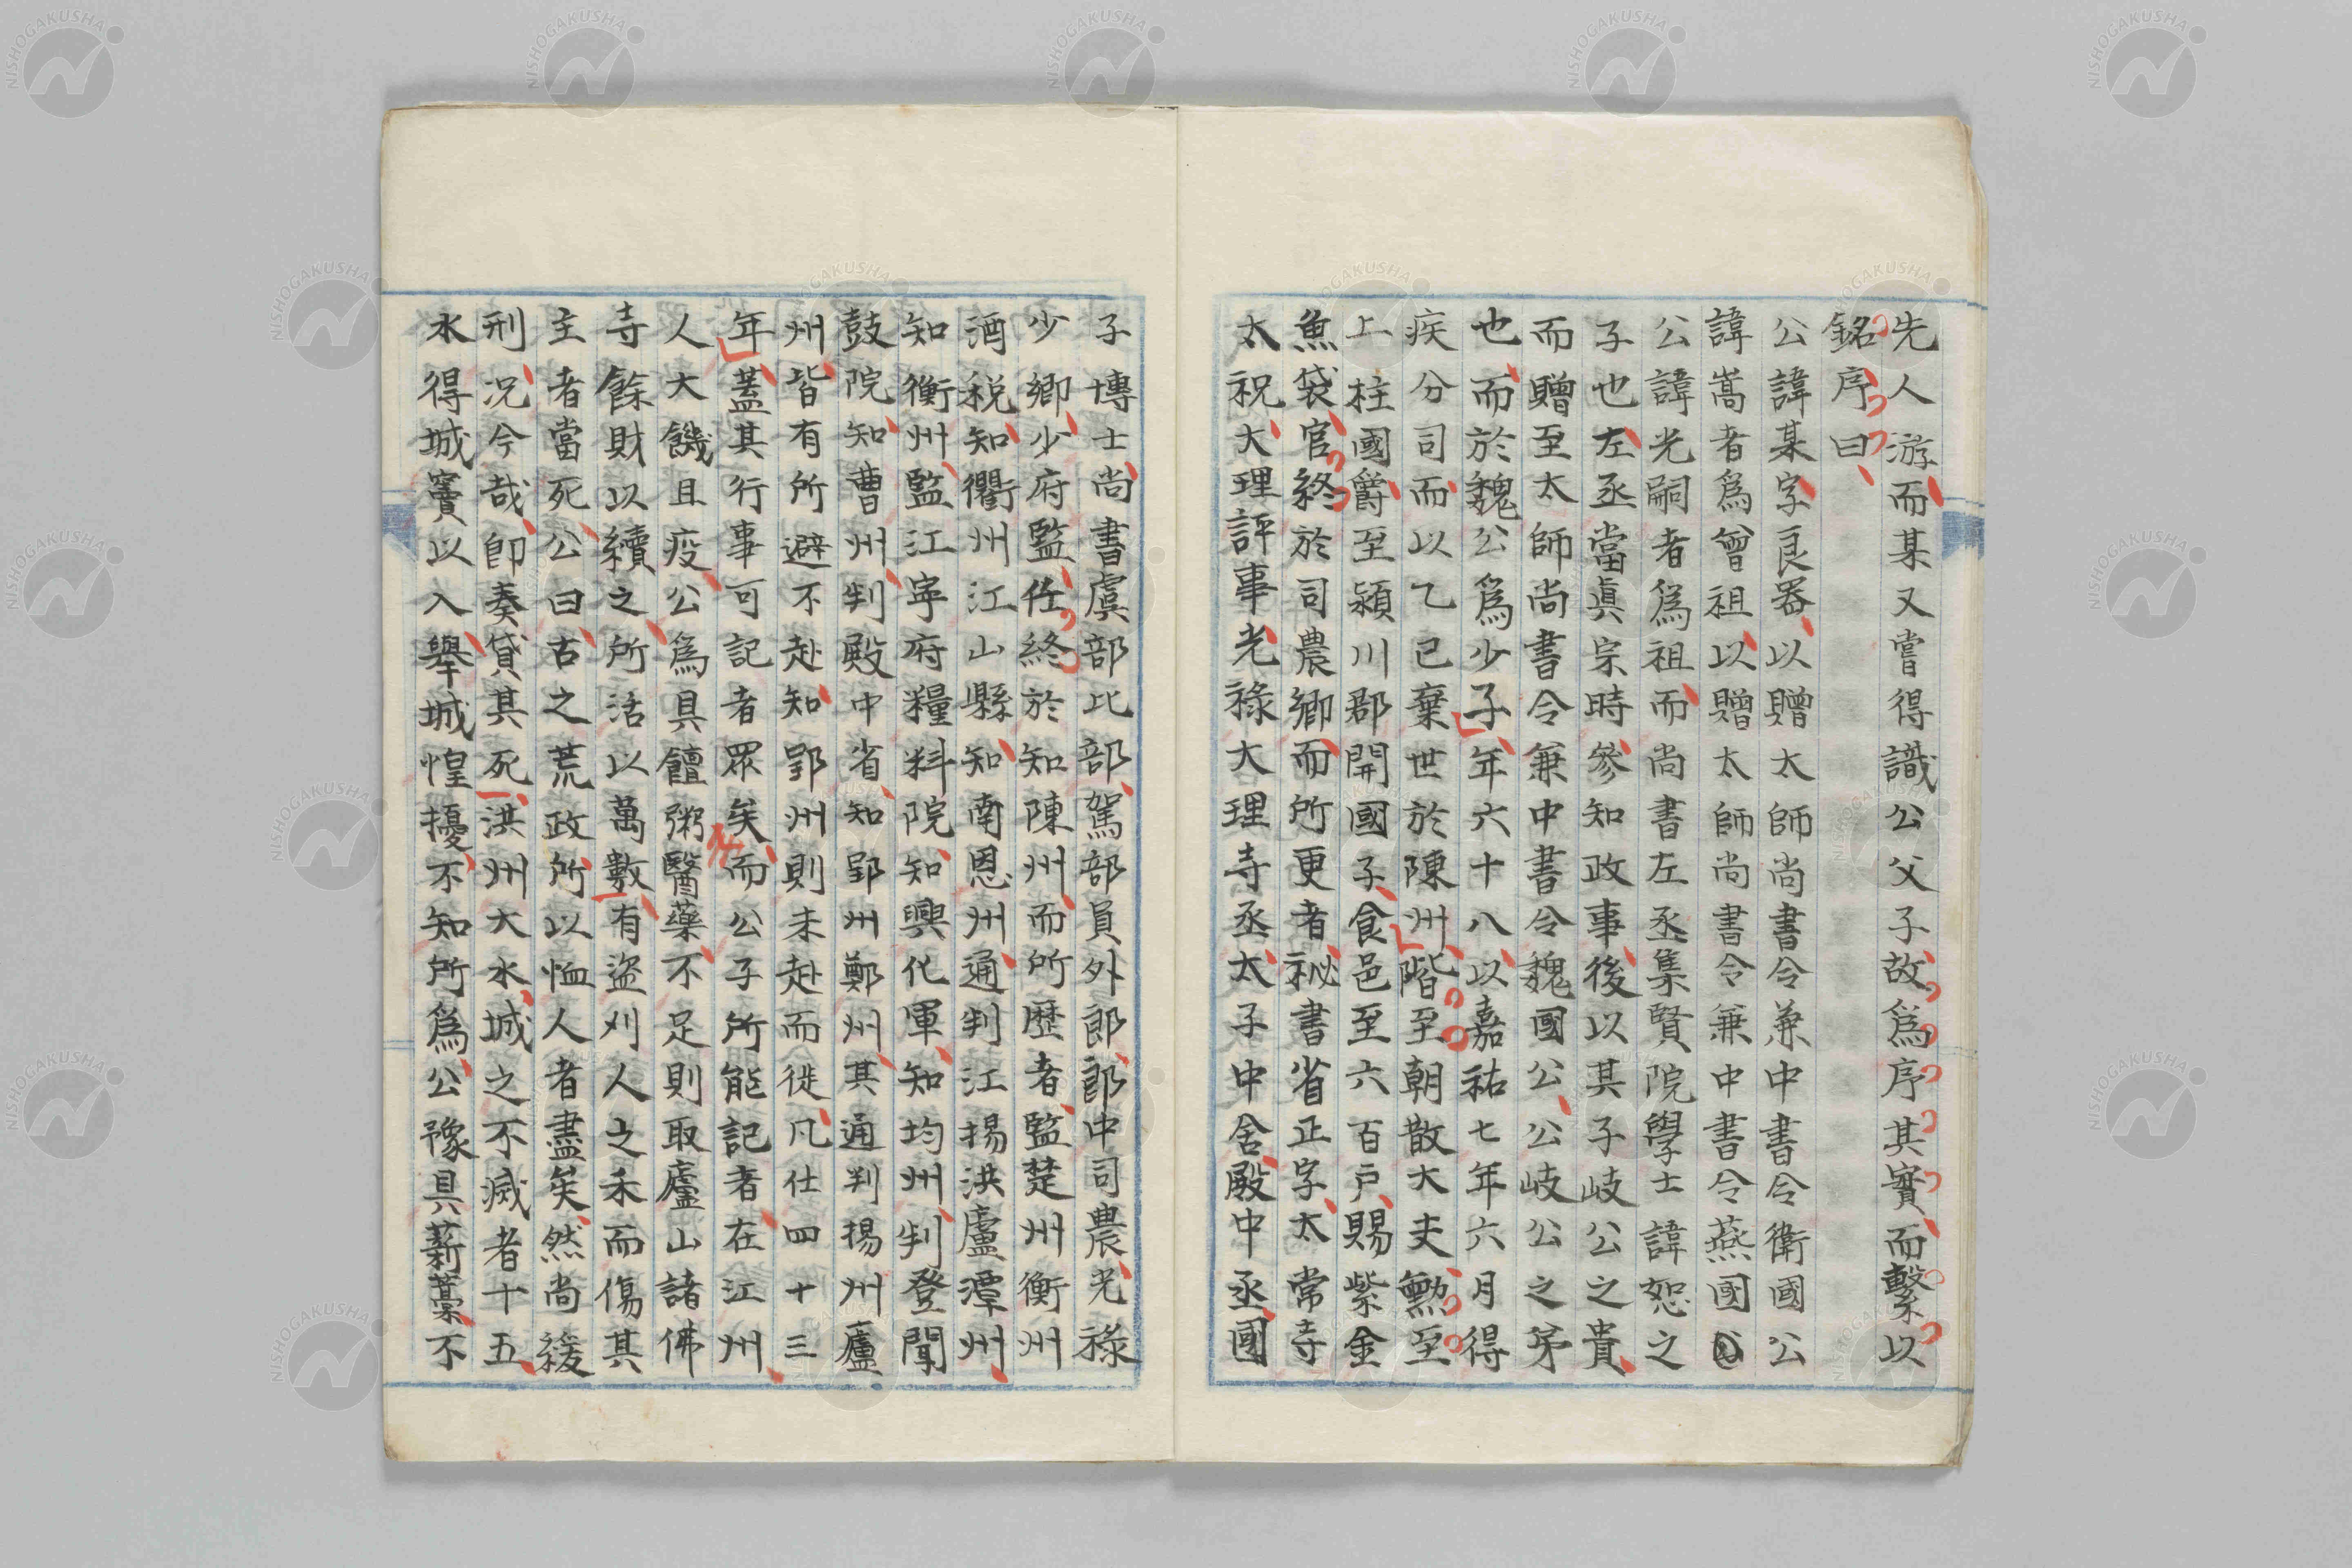 先人游而某又嘗得識公父子故爲序其實而繫以
銘序曰
公諱某字良器以贈太師尚書令兼中書令衛國公
諱嵩者爲曾祖以贈太師尚書令兼中書令燕國公
公諱光嗣者爲祖而尚書左丞集賢院學士諱恕之
子也左丞當眞宗時參知政事後以其子岐公之貴
而贈至太師尚書令兼中書令魏國公公岐公之弟
也而於魏公爲少子年六十八以嘉祐七年六月得
疾分司而以乙巳棄世於陳州階至朝散大夫勳至
上柱國爵至潁川郡開國子食邑至六百戶賜紫金
魚袋官終於司農卿而所更者祕書省正字太常寺
太祝大理評事光祿大理寺丞太子中舍殿中丞國
子博士尚書虞部比部駕部員外郎郎中司農光祿
少卿少府監任終於知陳州而所歷者監楚州衡州
酒稅知衢州江山縣知南恩州通判江揚洪廬潭州
知衡州監江寧府糧料院知興化軍知均州判登聞
鼓院知曹州判殿中省知郢州鄭州其通判揚州廬
州皆有所避不赴知郢州則未赴而徙凡仕四十三
年蓋其行事可記者眾矣而公子所能記者在江州
人大饑且疫公爲具饘粥醫藥不足則取廬山諸佛
寺餘財以續之所活以萬數有盜刈人之禾而傷其
主者當死公曰古之荒政所以恤人者盡矣然尚緩
刑况今哉卽奏貸其死洪州大水城之不滅者十五
水得城竇以入舉城惶擾不知所爲公豫具薪藁不
NISHOGAKUSHA